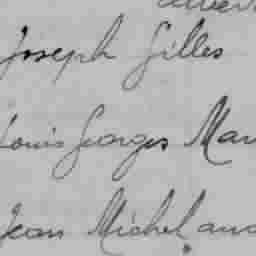 Joseph Gilles
Louis Georges Mar
Jean Michel and